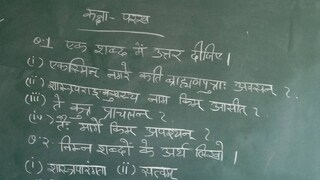 कक्षा - परख
प्र.1 एक शब्द में उत्तर दीजिए।
(i) एकस्मिन् नगरे कति ब्राह्मणपुत्राः अवसन् ?
(ii) शास्त्रपराङ्मुखस्य नाम किम् आसीत् ?
(iii) ते कुत्र प्राचलन् ?
(iv) तैः मार्गे किम् अपश्यन् ?
प्र.2. निम्न शब्दों के अर्थ लिखो।
(i) शास्त्रपारंगता (ii) सत्वम्